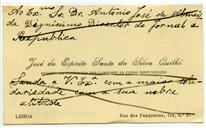 Ao Ex.mo Sr. Dr. António José de
Digníssimo Director do jornal a
Republica
José do Espirito Santo da Silva Coelho
Saúda V. Ex.ª com a maior soli-
dariedade com a sua nobre
atitude
LISBOA
Rua dos Fanqueiros,